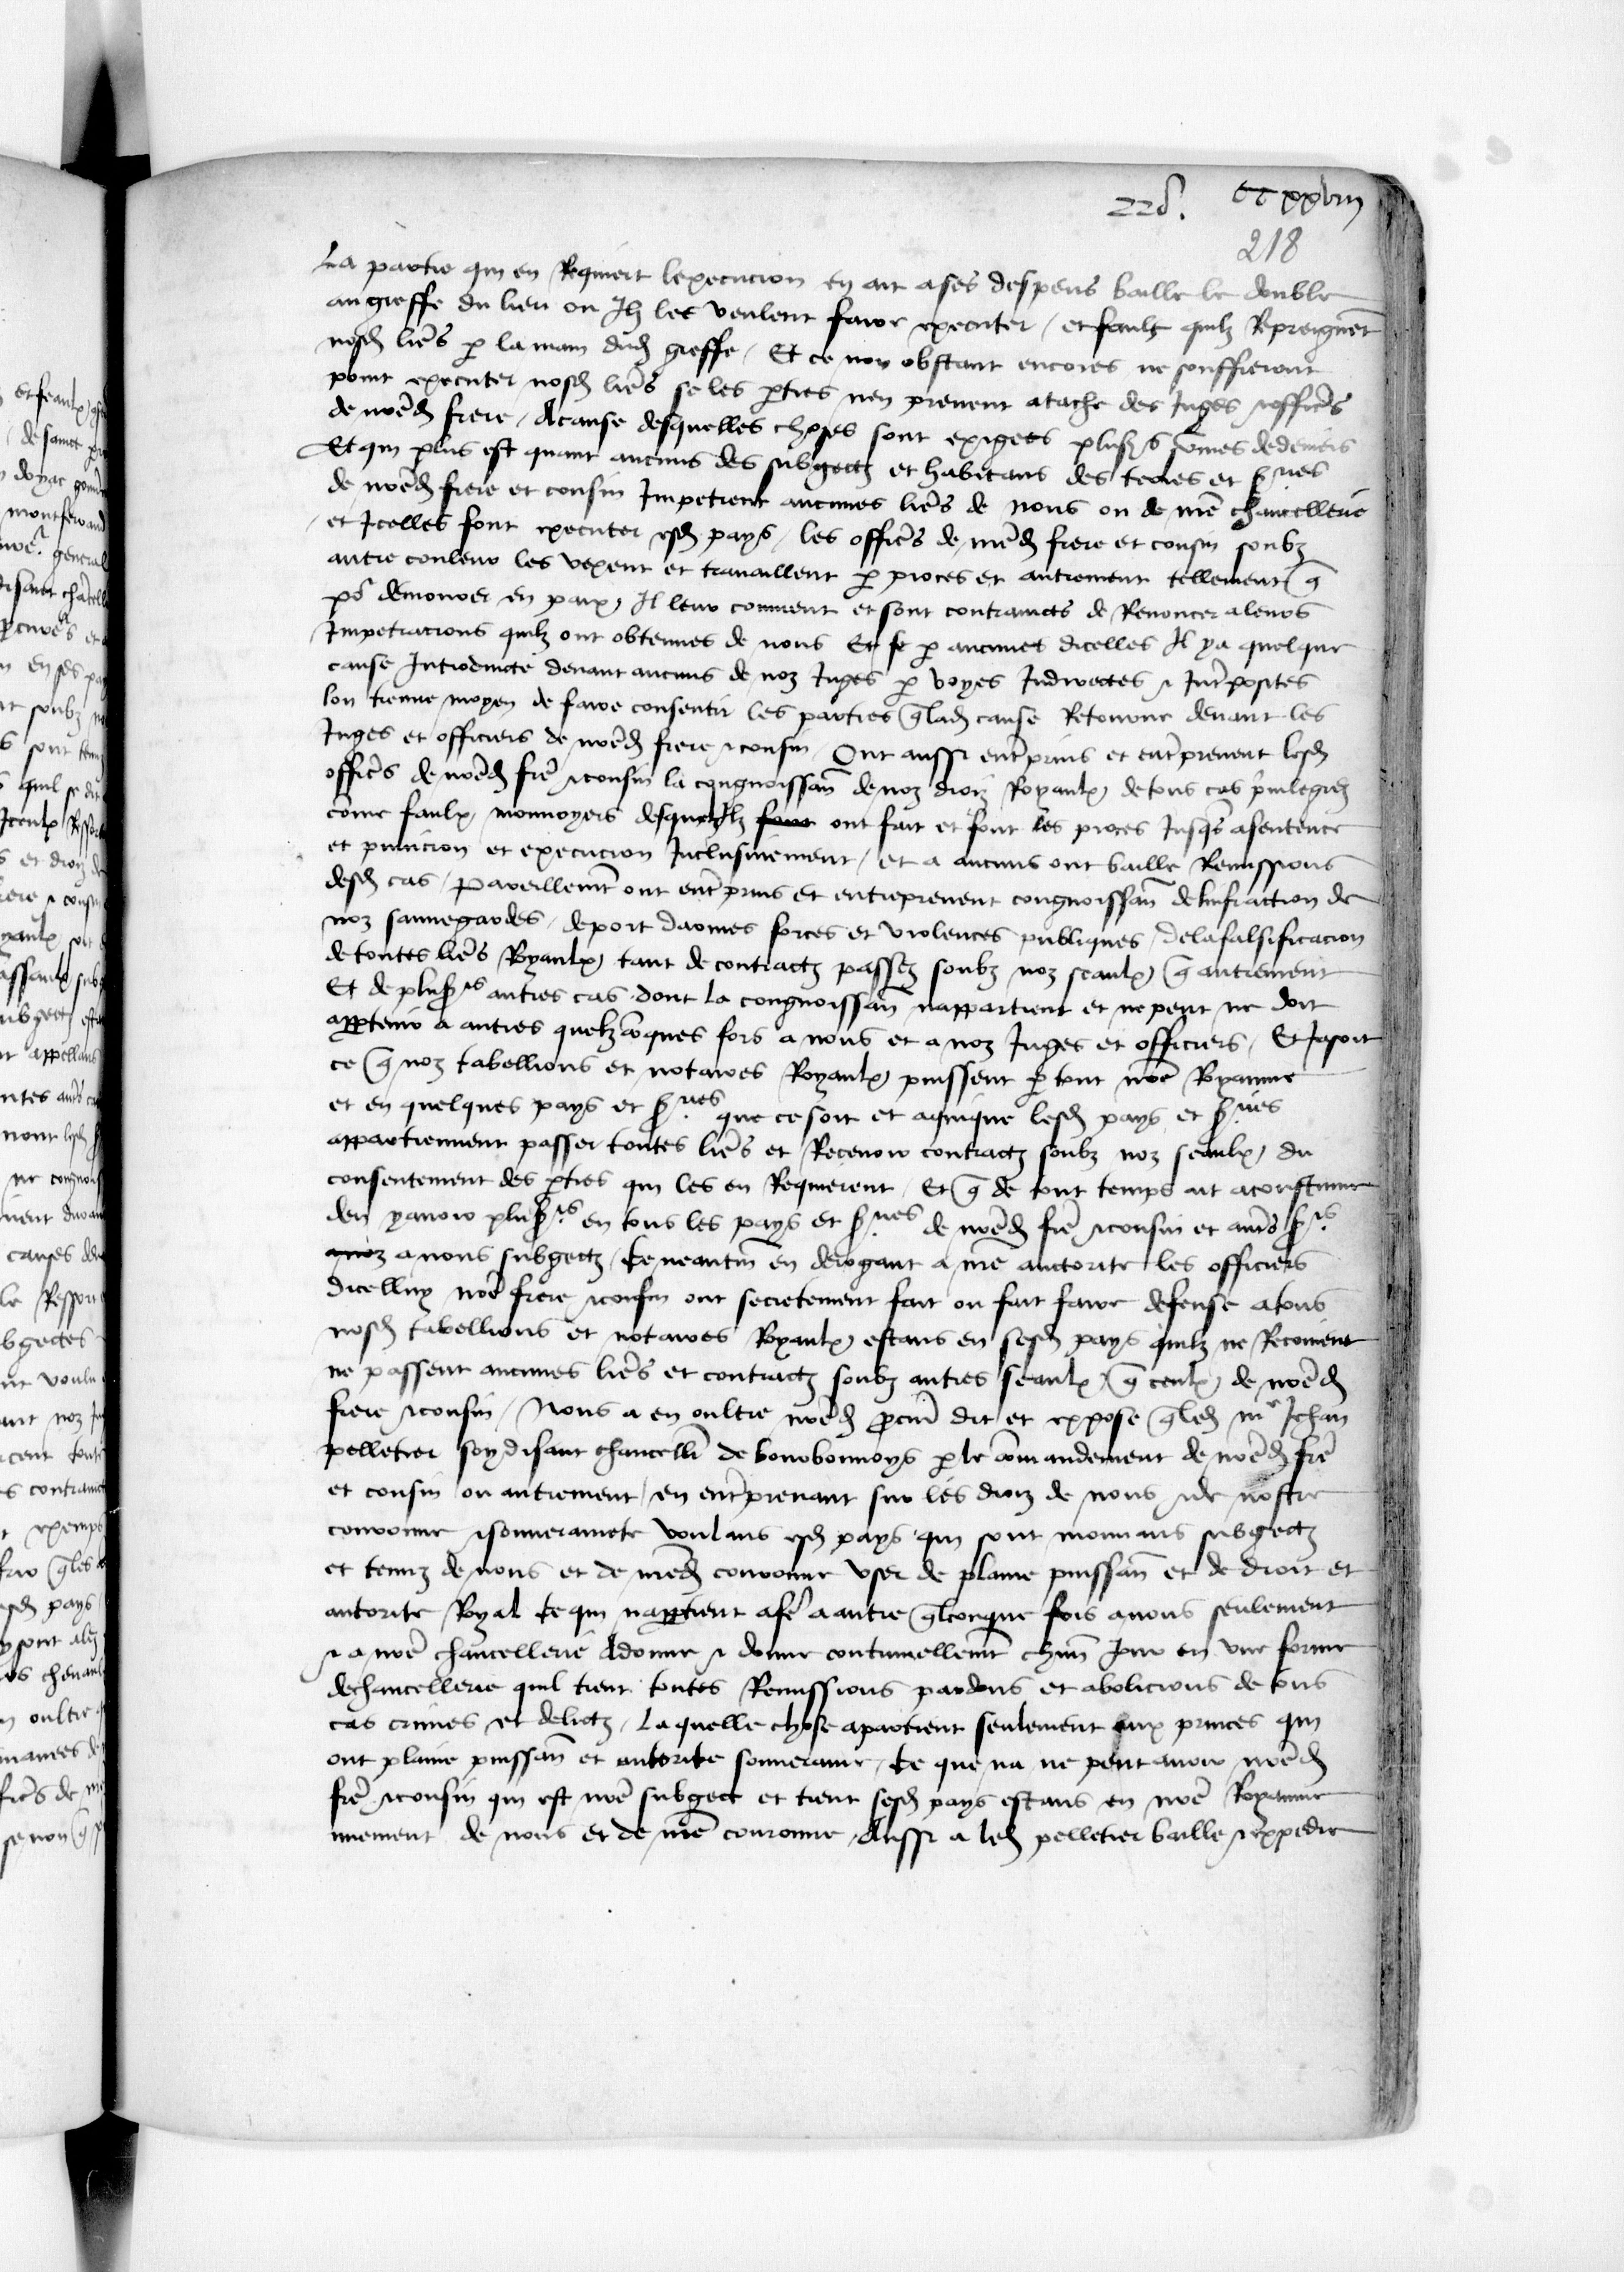 228. CC xxviii
218
La partie qui en Requiert lexecucion en ait a ses despens baille le double
au greffe du lieu ou Ilz les veulent faire executer / et fault quilz Repreignet
nosd lres p la main dud greffe / Et ce non obstant encores ne souffreront
point executer nosd lres se les pties nen prenent atache des Juges & officrs
de nred frere / A cause desquelles choses sont exigees plusrs somes de deniers
Et qui plus est quant aucuns des subgectz et habitans des terres et sries
de nred frere et cousin Impetrent aucunes lres de nous ou de nre chancellerie
et Icelles font executer esd pays / les officrs de nred frere et cousin soubz
autre couleur les vexent et travaillent p proces et autrement tellement q
po demourer en paix, Il leur convient et sont contrainctz de Renoncer a leurs
Impetracions quilz ont obtenues de nous Et se p aucunes dicelles Il y a quelque
cause Introduicte devant aucuns de noz Juges p voyes Indirectes & Intrposites
lon tienne moyen de faire consentir les parties q lad cause Retourne devant les
Juges et officiers de nred frere & cousin / Ont aussi entrprins et entrprenent lesd
officrs de nred fre & cousin la congnoissan de noz droiz Royaulx, de tous cas privilegiez
come faulx monnoyers desquelz Ilz ont fait et font les proces Jusqs a sentence
et punicion et execucion Inclusivement / et a aucuns ont baille Remissions
desd cas / Pareillemt ont entrprins et entreprenent congnoissan de linfraction de
noz sauvegardes, de port darmes forces et violences publiques / de la falsificacion
de toutes lres Royaulx, tant de contractz passez soubz noz seaulx, q autrement
Et de plusrs autres cas dont la congnoissan nappartient et ne peut ne doit
apptenir a autres quelzcoques fors a nous et a noz Juges et officiers / Et Jasoit
ce q noz tabellions et notaires Royaulx, puissent p tout nre Royaume
et en quelques pays et sries que ce soit et a qui que lesd pays et sries
appartiennent passer toutes lres et Recevoir contractz soubz noz seaulx, du
consentement des pties qui les en Requierent / Et q de tout temps ait acoustume
den y avoir plusrs en tous les pays et sries de nred fre & cousin et autrs srs
a nous subgectz / Ce neantm en derogant a nre auctorite les officiers
dicelluy nre frere & cousin ont secretement fait ou fait faire defense a tous
nosd tabellions et notaires Royaulx, estans en sesd pays quilz ne Recoivent
ne passent aucunes lres et contractz soubz autres seaulx, q ceulx, de nred
frere & cousin / Nous a en oultre nred procur dit et expose q led me Jehan
pelletier soy disant chancellr de bourbonnoys p le comandement de nred fre
et cousin ou autrement / en entrprenant sur les droiz de nous & de nostre
couronne & souverainete voulans esd pays qui sont mouvans subgectz
et tenuz de nous et de nred couronne user de plaine puissan et de droit et
autorite Royal Ce qui napptient a fre a autre qlconque fors a nous seulement
& a nre chancellerie A donne & donne continuellemt chun jour en une forme
de chancellerie quil tient toutes Remissions pardons et abolicions de tous
cas crimes et delictz / Laquelle chose apartient seulement aux princes qui
ont plaine puissan et autorite souveraine / Ce que na ne peut avoir nred
fre & cousin qui est nre subgect et tient sesd pays estans en nre Royaume
nuement de nous et de nre couronne / Aussi a led pelletier baille & expedie